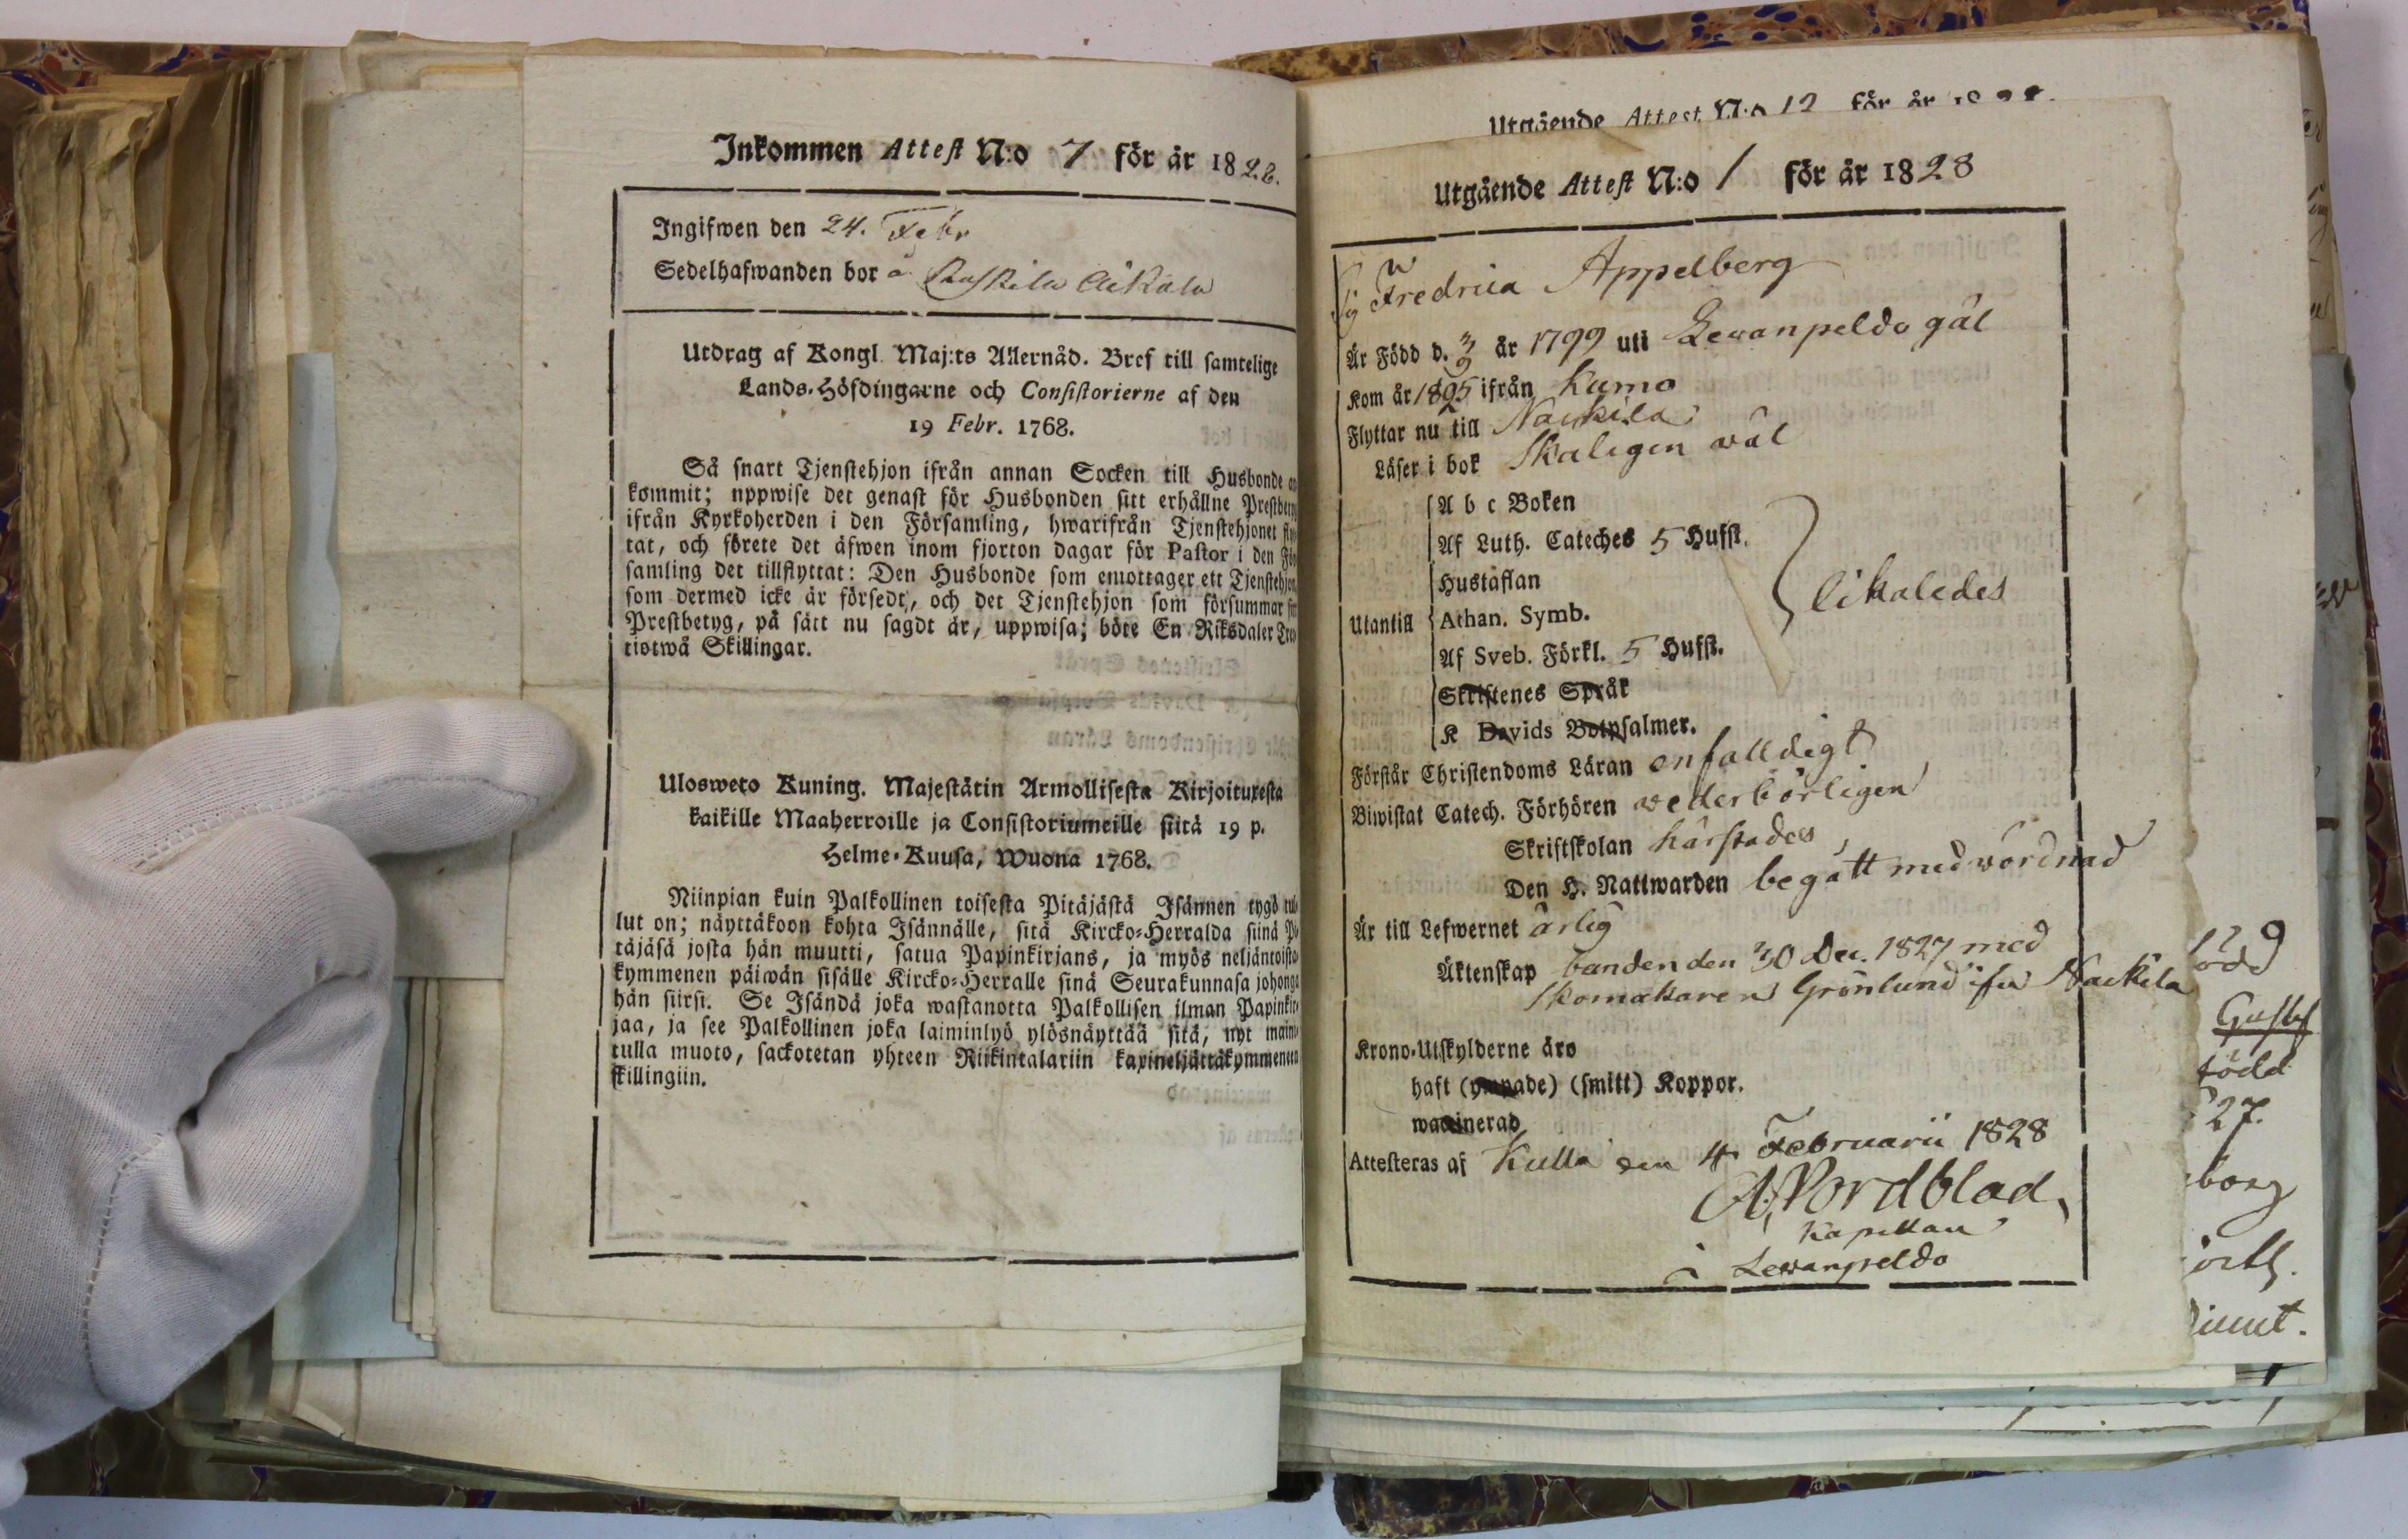 Inkommen Attest N:o 7 för år 1828.
Ingifwen den 24. Febr
Sedelhafwanden bor å Aikala
Utdrag af Kongl. Maj:ts Allernåd. Bref till samtelige
Lands-Höfdingarne och Consistorierne af den
19 Febr. 1768.
Så snart Tjenstehjon ifrån annan Socken till Husbonde
kommit; uppwise det genast för Husbonden sitt erhållne
ifrån Kyrkoherden i den Församling, hwarifrån Tjenstehjonet
tat, och förete det äfwen inom fjorton dagar för Pastor i den
samling det tillflyttat: Den Husbonde som emottager ett
som dermed icke är försedt, och det Tjenstehjon som försummar
Prestbetyg, på sätt nu sagdt är, uppwisa; böte En Riksdaler
tiotwå Skillingar.
Ulosweto Kuning. Majestätin Armollisesta Kirjoituxesta
kaikille Maaherroille ja Consistoriumeille siitä 19 p.
Helme-Kuusa, Wuona 1768.
Niinpian kuin Palkollinen toisesta Pitäjästä Isännen tygö
lut on; näyttäkoon kohta Isännälle, sitä Kircko-Herralda siinä
täjäsä josta hän muutti, satua Papinkirjans, ja myös neljäntoista
kymmenen päiwän sisälle Kircko-Herralle sinä Seurakunnasa
hän siirsi. Se Isändä joka wastanotta Palkollisen ilman
jaa, ja see Palkollinen joka laiminlyö ylösnäyttää sitä, nyt
tulla muoto, sackotetan yhteen Riikintalariin
skillingiin.
Utgående Attest N:o 12 för år
Utgående Attest N:o 1 för år 1828
Fredrica Appelberg
Är Född d. 3/9 år 1799 uti Lewanpeldo gäl
Kom år 1825 ifrån Kumo
Flyttar nu till Nackila
Läser i bok Skäligen wäl
A b c Boken
Af Luth. Cateches 5 Hufst.
Hustaflan
likaledes
Utantill Athan. Symb.
Af Sveb. Förkl. 5 Hufst.
Skriftenes Språk
K Davids Botpsalmer.
Förstår Christendoms Läran enfalldigt
Biwistat Catech. Förhören wederbörligen
Skriftskolan härstädes
Den H. Nattwarden begått med wördnad
Är till Lefwernet ärlig
Äktenskap banden den 30 Dec. 1827 med
Skomakaren Grönlund ifrån Nackila
Krono-Utskylderne äro
haft (ympade) (smitt) Koppor.
waccinerad
Attesteras af Kulla den 4 Februarii 1828
A. Nordblad,
Kapellan
i Lewanpeldo
född
Gustaf
född
27.